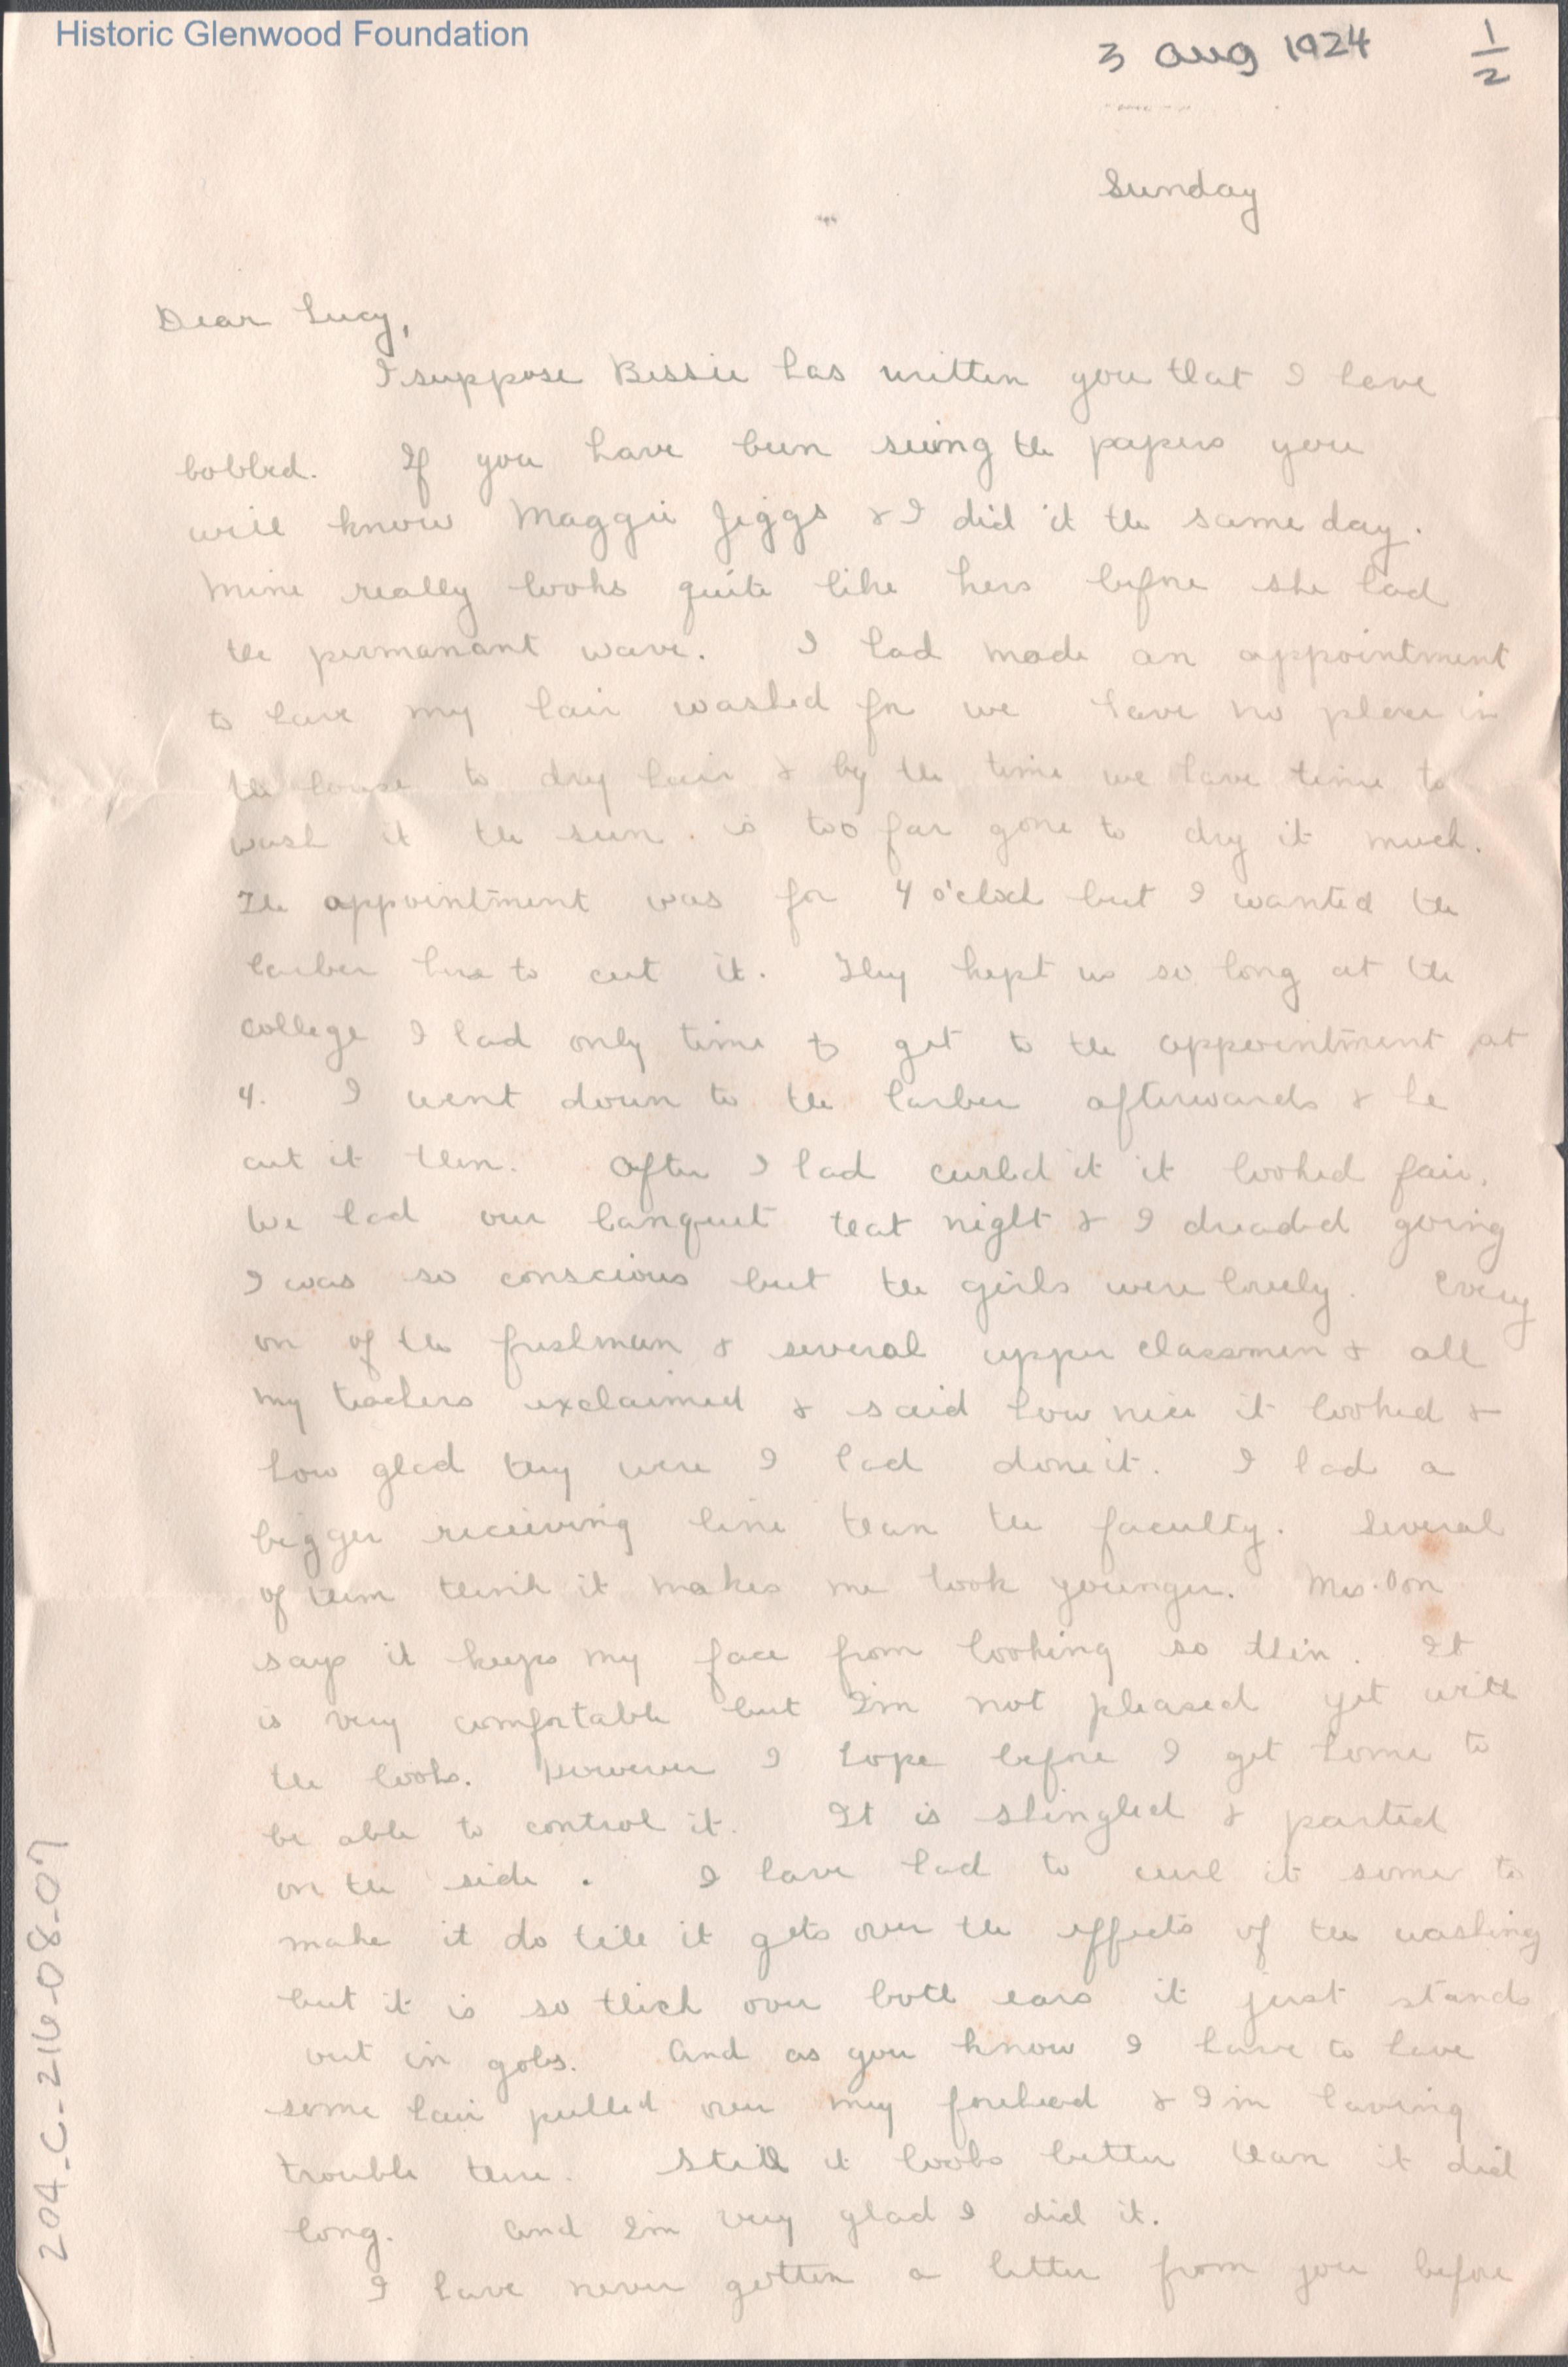 Historic Glenwood Foundation
3 Aug 1924
1/2
Sunday
Dear Lucy,
I suppose Bessie has written you that I have
bobbed. If you have been seeing the papers you
will know Maggie Jiggs & I did it the same day.
Mine really looks quite like hers before she had
the permanant wave. I had made an appointment
to have my hair washed for we have no place in
the house to dry hair & by the time we have time to
wash it the sun is too far gone to dry it much.
The appointment was for 4 o'clock but I wanted the
barber here to cut it. They kept us so long at the
college I had only time to get to the appointment at
4. I went down to the barber afterwards & he
cut it then. After I had curled it it looked fair.
We had our banquet that night & I dreaded going
I was so conscious but the girls were lovely. Every
on of the freshman & several upper classmen & all
my teachers exclaimed & said how nice it looked &
how glad they were I had done it. I had a
bigger receiving line than the faculty. Several
of them think it makes me look younger. Mrs.
says it keeps my face from looking so thin. It
is very comfortable but I'm not pleased yet with
the looks. However I hope before I get home to
be able to control it. It is shingled & parted
on the side. I have had to curl it some to
make it do till it gets over the effects of the washing
but it is so thick over both ears it just stands
out in gobs. And as you know I have to have
some hair pulled over my forehead & I'm having
trouble there. Still it looks better than it did
long. And I'm very glad I did it.
I have never gotten a letter from you before
204-C-216-08-07